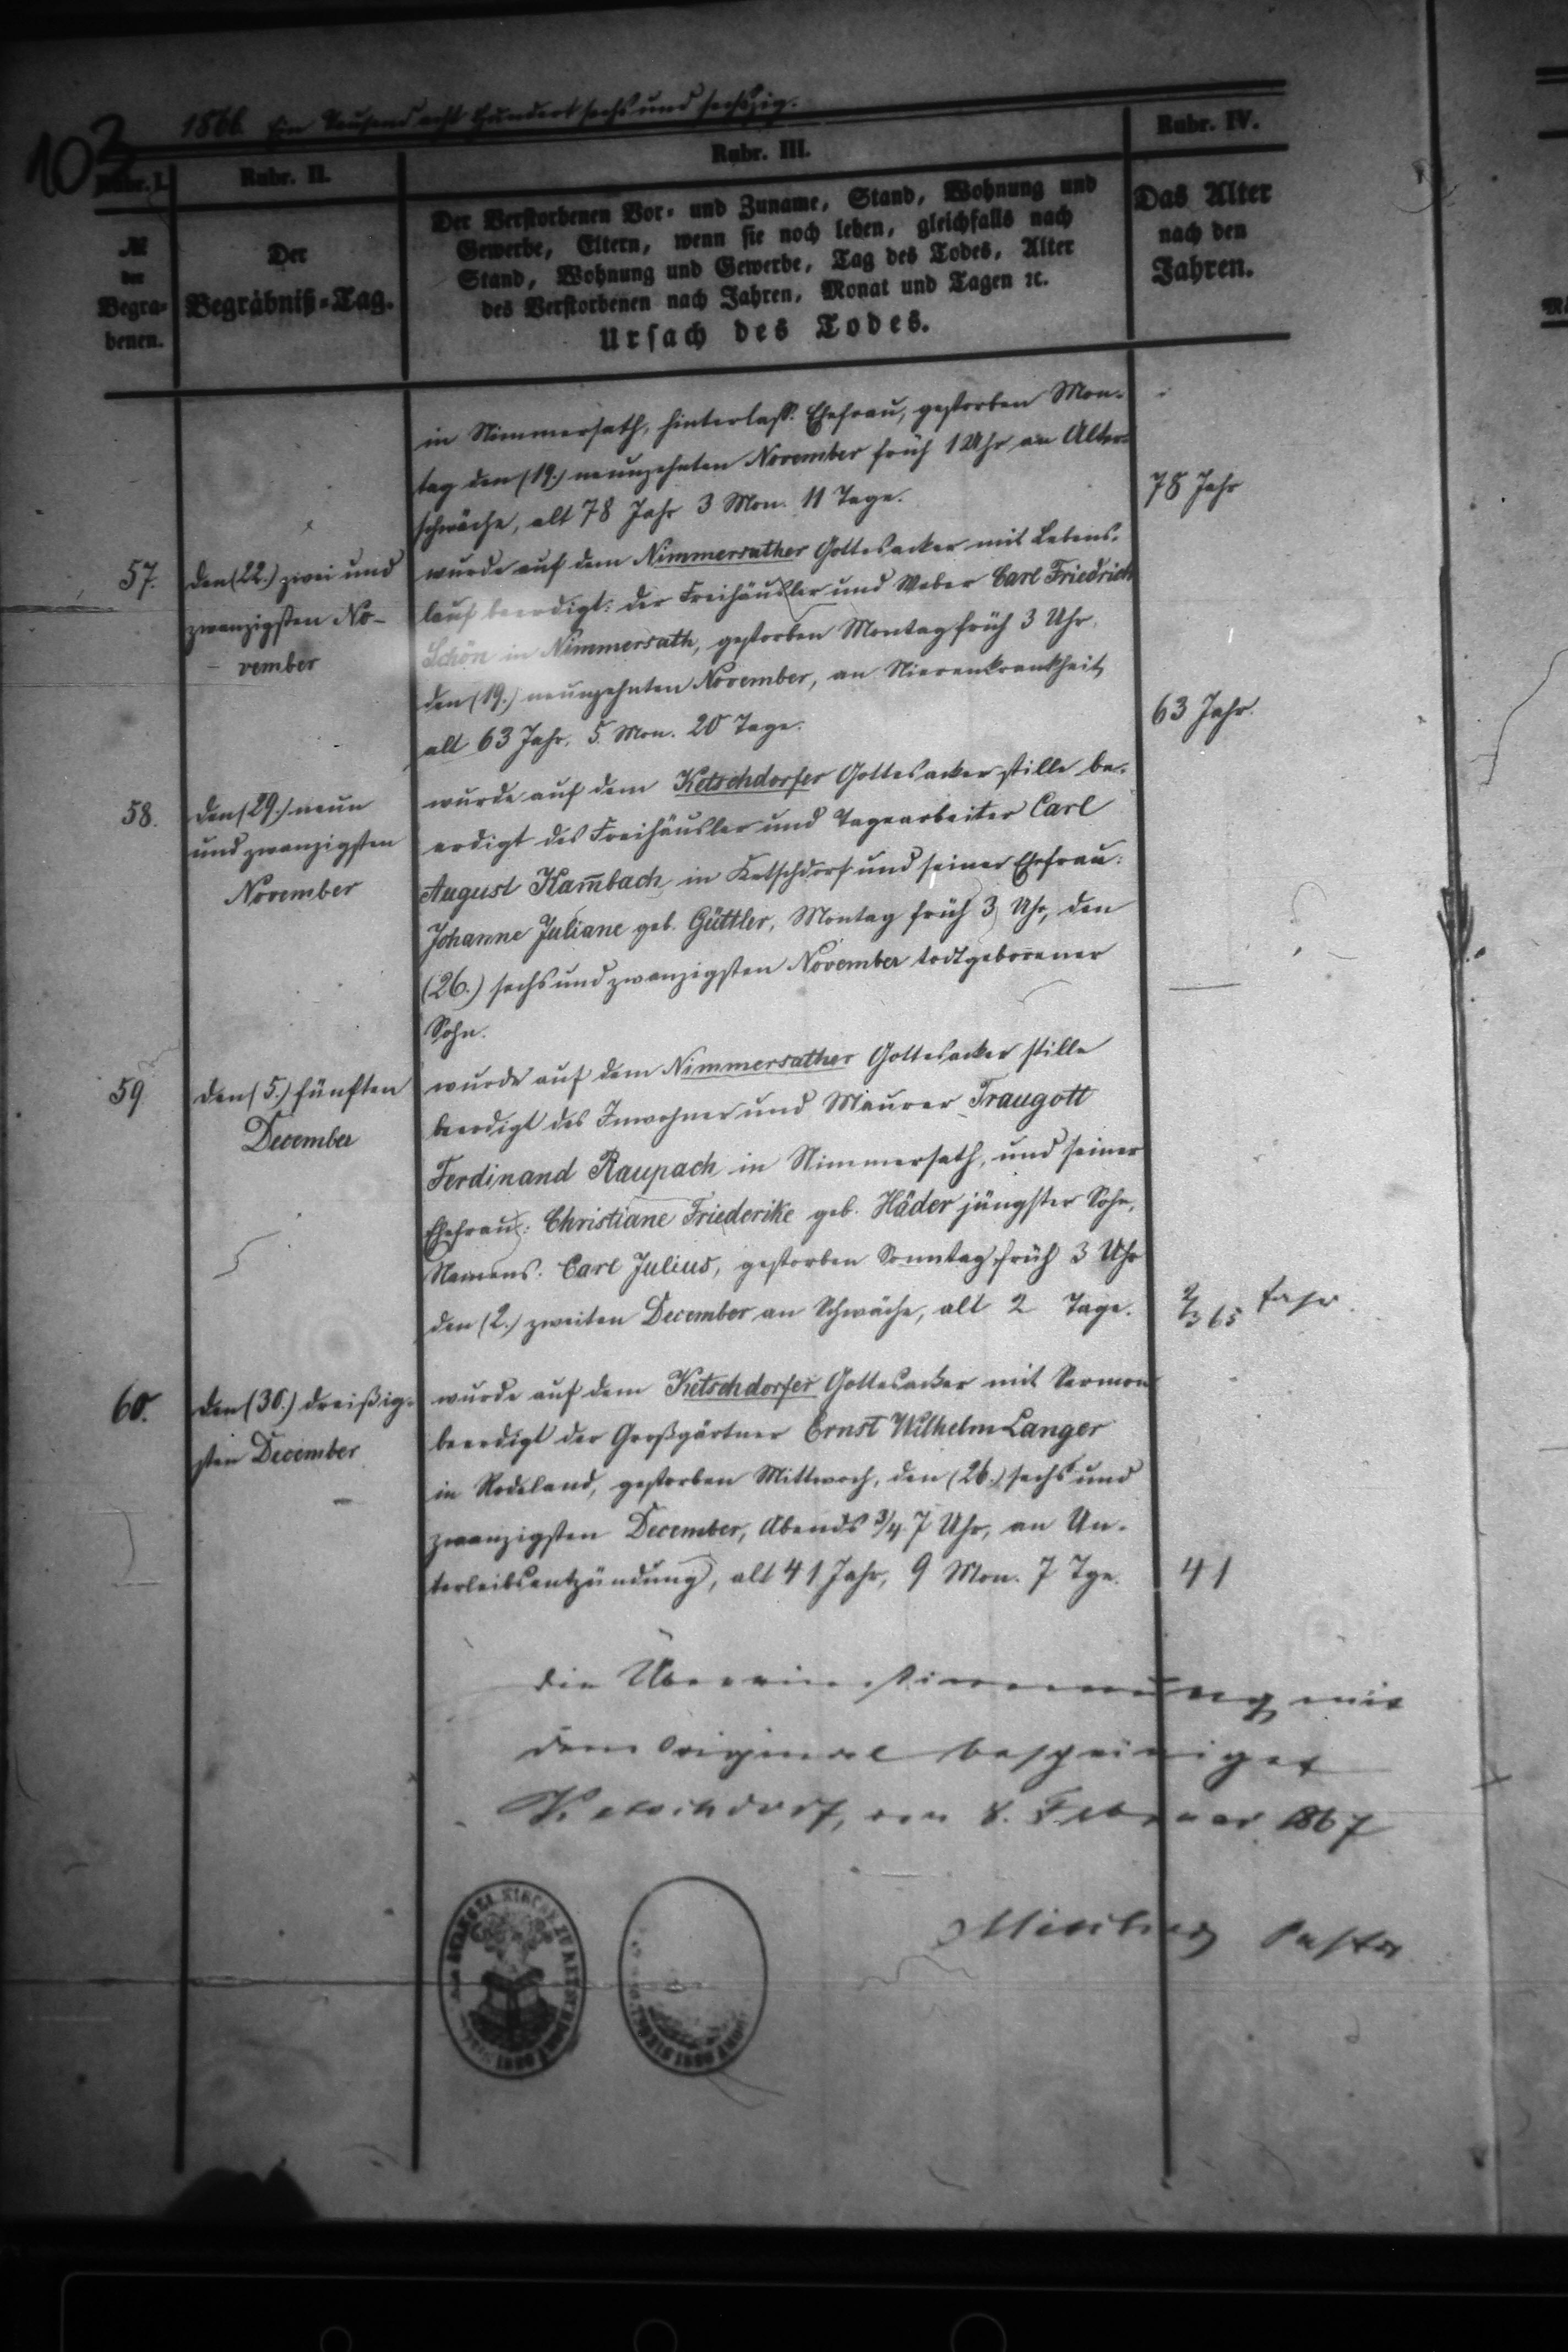 103
1866. Ein Tausend acht Hundert sechs und sechszig.
Rubr. I.
Rubr. II.
Rubr. III.
Rubr. IV.
№
der
Begra-
benen.
Der
Begräbniß-Tag.
Der Verstorbenen Vor- und Zuname, Stand, Wohnung und
Gewerbe, Eltern, wenn sie noch leben, gleichfalls nach
Stand, Wohnung und Gewerbe, Tag des Todes, Alter
des Verstorbenen nach Jahren, Monat und Tagen ꝛc.
Ursach des Todes.
Das Alter
nach den
Jahren.
in Nimmersath, hinterlass. Ehefrau, gestorben Mon-
tag den (19.) neunzehnten November früh 1 Uhr an Alters-
schwäche, alt 78 Jahr 3 Mon. 11 Tage.
78 Jahr
57.
den (22.) zwei und
zwanzigsten No-
vember
wurde auf dem Nimmersather Gottesacker mit Lebens-
lauf beerdigt: der Freihäusler und Weber Carl Friedrich
Schön in Nimmersath, gestorben Montag früh 3 Uhr,
den (19.) neunzehnten November, an Nierenkrankheit,
alt 63 Jahr, 5 Mon. 20 Tage.
63 Jahr.
58.
den (29.) neun
und zwanzigsten
November
wurde auf dem Ketschdorfer Gottesacker stille be-
erdigt des Freihäusler und Tagearbeiter Carl
August Kam̄bach in Ketschdorf und seiner Ehefrau:
Johanne Juliane geb. Güttler, Montag früh 3 Uhr, den
(26.) sechs und zwanzigsten November todtgeborener
Sohn.
59.
den (5.) fünften
December
wurde auf dem Nimmersather Gottesacker stille
beerdigt des Inwohner und Maurer Traugott
Ferdinand Raupach in Nimmersath, und seiner
Ehefrau: Christiane Friederike geb. Häder jüngster Sohn,
Namens: Carl Julius, gestorben Sonntag früh 3 Uhr
den (2.) zweiten December an Schwäche, alt 2 Tage.
2/365 Jahr.
60.
den (30.) dreißig-
sten December
wurde auf dem Ketschdorfer Gottesacker mit Sermon
beerdigt der Großgärtner Ernst Wilhelm Langer
in Rodeland, gestorben Mittwoch, den (26.) sechs und
zwanzigsten December, Abends 3/4 7 Uhr, an Un-
terleibsentzündung, alt 41 Jahr, 9 Mon. 7 Tge.
41
Die Übereinstimmung mit
dem Original bescheiniget
Ketschdorf, den 8. Februar 1867
Pastor
KIRCHE ZU KETSCHDORF